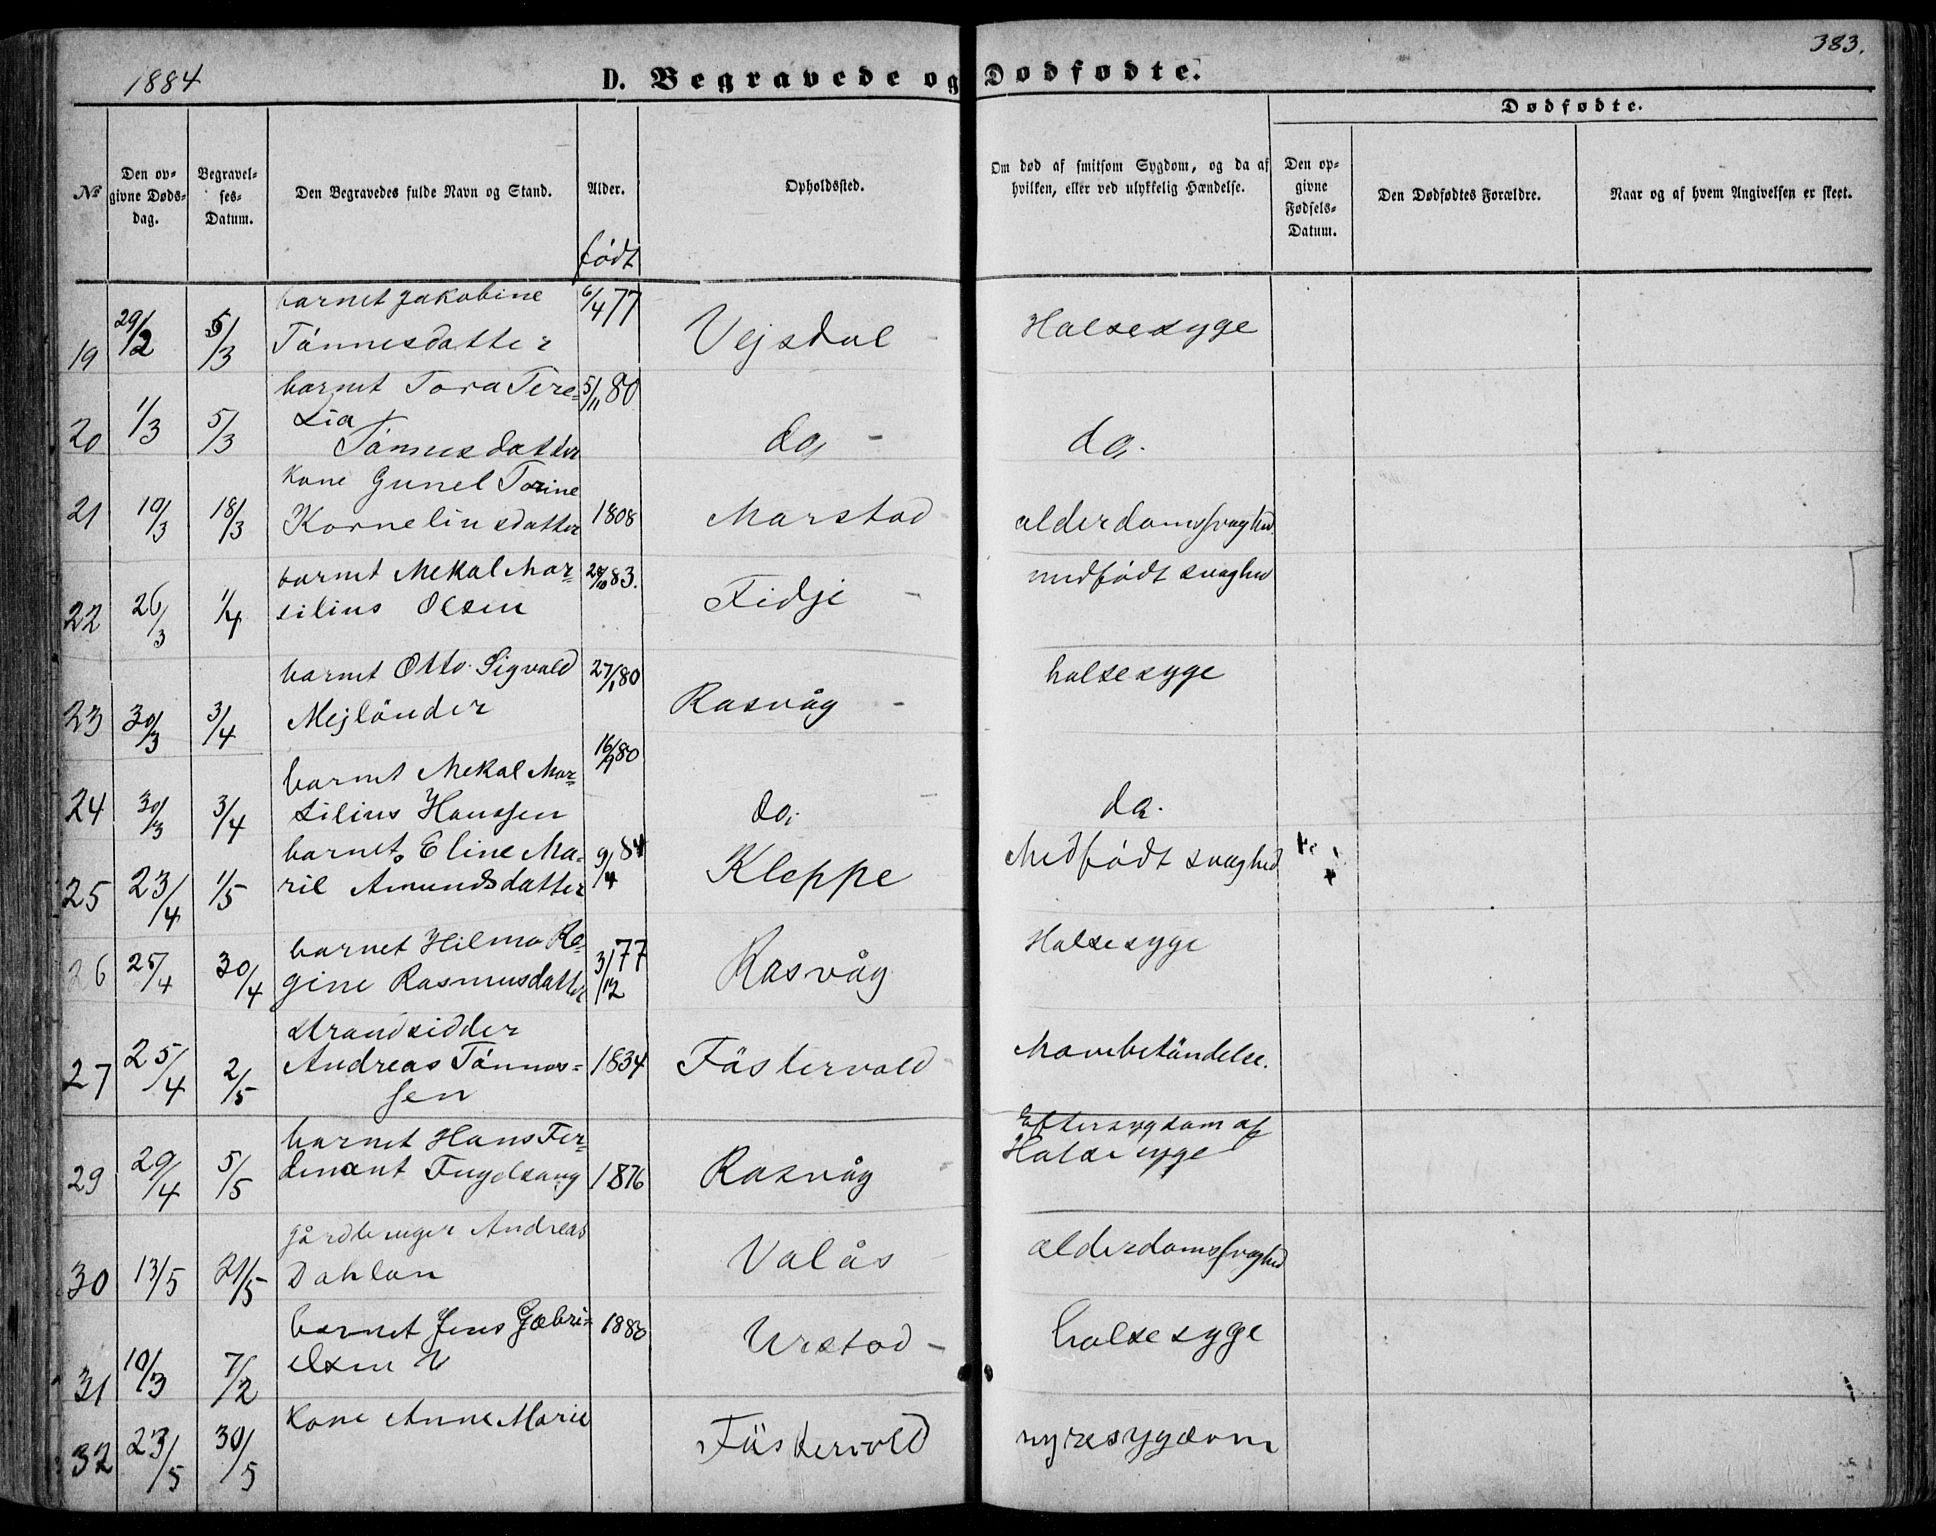 1884
D. Begravede og Dødfødte.
383.
Dødfødte.
№
Den opgivne Døds-dag.
Begravelses-Datum.
Den Begravedes fulde Navn og Stand.
Alder.
Opholdssted.
Om død af smitsom Sygdom, og da af hvilken, eller ved ulykkelig Hændelse.
Den opgivne Fødsels-Datum.
Den Dødfødtes Forældre.
Naar og af hvem Angivelsen er skeet.
født
19 29/2 5/3 barnet Jakobine 6/4 77 Vejsdal Halsesyge
Tønnesdatter
20 1/3 5/3 barnet Tora Tere= 5/11 80 do do.
sia
Tønnesdatter
21 10/3 18/3 Kone Gunel Torine 1808 Marstad alderdomssvaghed
Korneliusdatter
22 26/3 1/4 barnet Mekal Mar= 83. Fidje medfødt svaghed
silius Olsen
23 30/3 3/4 barnet Otto Sigvald 27/1 80 Rasvåg halsesyge
Mejländer
24 30/3 3/4 barnet Mekal Mar= 16/9 80 do. do.
silius Hanssen
25 23/4 1/5 barnet Eline Ma= 9/4 84 Kleppe Medfødt svaghed
ril Amundsdatter
26 25/4 30/4 barnet Hilma Re= 3/12 77 Rasvåg Halsesyge
gine Rasmusdatter
27 25/4 2/5 strandsidder 1834 Mavebetændelse.
Andreas Tønnes=
sen
29 29/4 5/5 barnet Hans Fer= 1876 Rasvåg Eftersygdom af
dinant Fugelsang Halsesyge
30 13/5 21/5 gårdbruger Andreas Valås alderdomssvaghed
Dahlan
31 10/3 7/2 barnet Jens Gabri= 1880 Urstad halsesyge
elsen
32 23/5 30/5 Kone Anne Marie nyresygdom